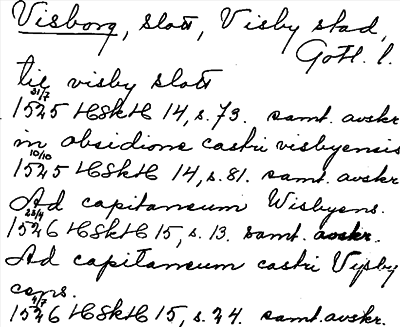 Visborg, slott, Visby stad,
Gotl. l.
till visby slott
31/7
1525 HSkH 14, s. 73. samt. avskr.
in obsidione castri visbyensis
10/10
1525 HSkH 14, s. 81. samt. avskr.
Ad capitaneum Wisbyens.
28/4
1526 HSkH 15, s. 13. samt. avskr.
Ad capitaneum castri Vysby
cens.
4/7
1526 HSkH 15, s. 24. samt. avskr.